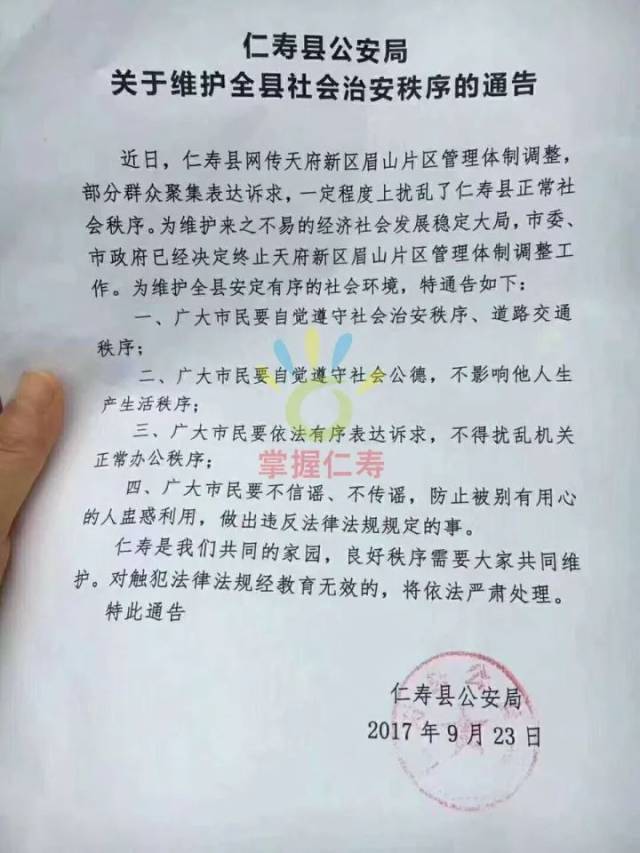 仁寿县公安局
关于维护全县社会治安秩序的通告
近日，仁寿县网传天府新区眉山片区管理体制调整，
部分群众聚集表达诉求，一定程度上扰乱了仁寿县正常社
会秩序。为维护来之不易的经济社会发展稳定大局，市委、
市政府已经决定终止天府新区眉山片区管理体制调整工
作。为维护全县安定有序的社会环境，特通告如下：
一、广大市民要自觉遵守社会治安秩序、道路交通
秩序；
二、广大市民要自觉遵守社会公德，不影响他人生
产生活秩序；
三、广大市民要依法有序表达诉求，不得扰乱机关
正常办公秩序；
掌握仁寿
四、广大市民要不信谣、不传谣，防止被别有用心
的人蛊惑利用，做出违反法律法规规定的事。
仁寿是我们共同的家园，良好秩序需要大家共同维
护。对触犯法律法规经教育无效的，将依法严肃处理。
特此通告
仁寿县公安局
2017年9月23日